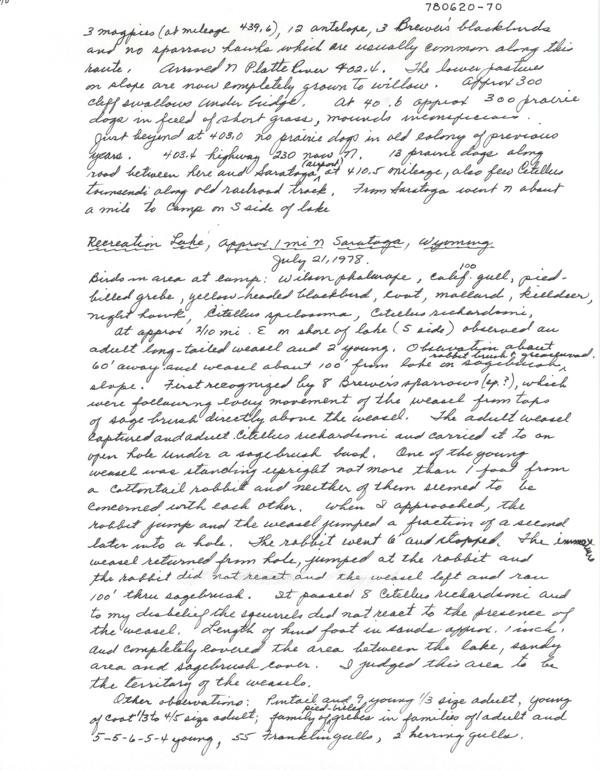 780620-70
3 magpies (at mileage 439.6), 12 antelope, 3 Brewer's blackbirds
and no sparrow hawks which are usually common along this
route. Arrived N Platte River 402.4. The lower pastures
on slope are now completely grown to willow. Approx 300
cliff swallows under bridge. At 40 .6 approx 300 prairie
dogs in field of short grass, mounds inconspicious.
Just beyond at 403.0 no prairie dogs in old colony of previous
years. 403.4 highway 230 now N. 13 prairie dogs along
road between here and Saratoga (airport) at 410.5 mileage, also few Citellus
townsendi along old railroad track. From Saratoga went N about
a mile to camp on S side of lake
Recreation Lake, approx 1 mi N Saratoga, Wyoming.
July 21, 1978.
Birds in area at camp: Wilson phalarope, 100 Calif. gull, pied-
billed grebe, yellow-headed blackbird, coot, mallard, killdeer,
night hawk, Citellus spilosoma, Citellus richardsoni,
At approx 2/10 mi. E on shore of lake (S side) observed an
adult long-tailed weasel and 2 young. Observation about
60' away and weasel about 100' from lake in sagebrush, rabbit brush & greasewood
slope. First recognized by 8 Brewers sparrows (sp.?), which
were following every movement of the weasel from tops
of sage brush directly above the weasel. The adult weasel
captured and adult Citellus richardsoni and carried it to an
open hole under a sagebrush bush. One of the young
weasel was standing upright not more than 1 foot from
a cottontail rabbit and neither of them seemed to be
concerned with each other. When I approached, the
rabbit jump and the weasel jumped a fraction of a second
later into a hole. The rabbit went 6' and stopped. The immature
weasel returned from hole, jumped at the rabbit and
the rabbit did not react and the weasel left and ran
100' thru sagebrush. It passed 8 Citellus richardsoni and
to my disbelief the squirrels did not react to the presence of
the weasel. Length of hind foot in sands approx. 1 inch.
and completely covered the area between the lake, sandy
area and sagebrush cover. I judged this area to be
the territory of the weasels.
Other observations: Pintail and 9 young 1/3 size adult, young
of coot 1/3 to 4/5 size adult; family of pied-billed grebes in families of 1 adult and
5-5-6-5-4 young, 55 Franklin gulls, 2 herring gulls.